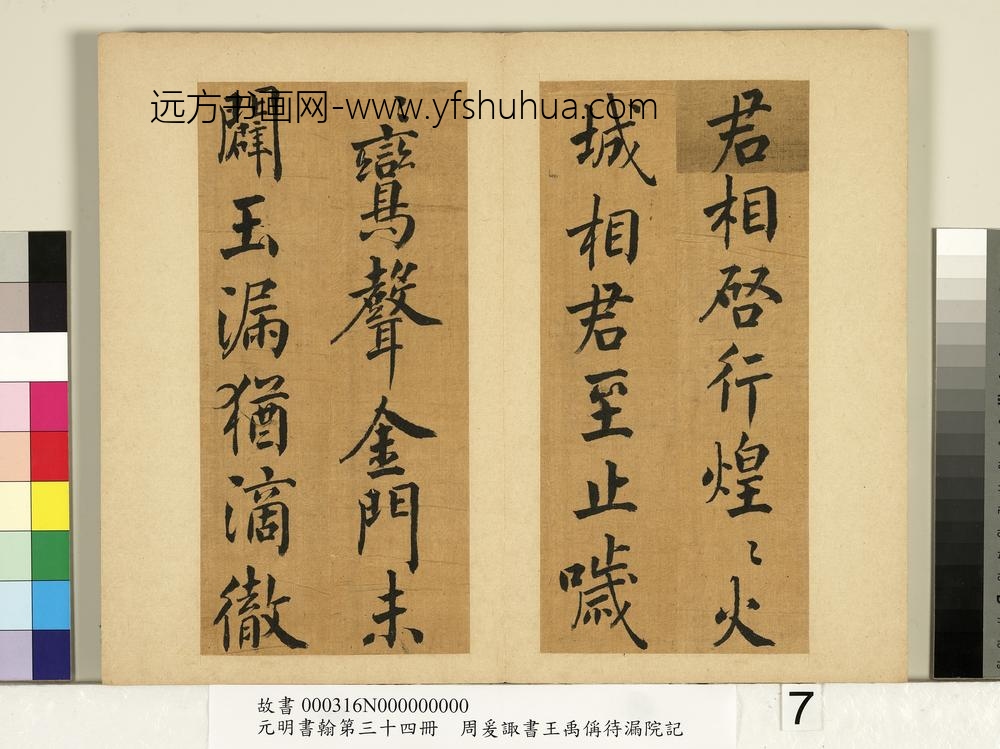 君相啓行煌〻火
城相君至止噦
〻鸞聲金門未
闢玉漏猶滴徹
远方书画网-www.yfshuhua.com
故書 000316N000000000
元明書翰第三十四冊 周爰諏書王禹偁待漏院記
7